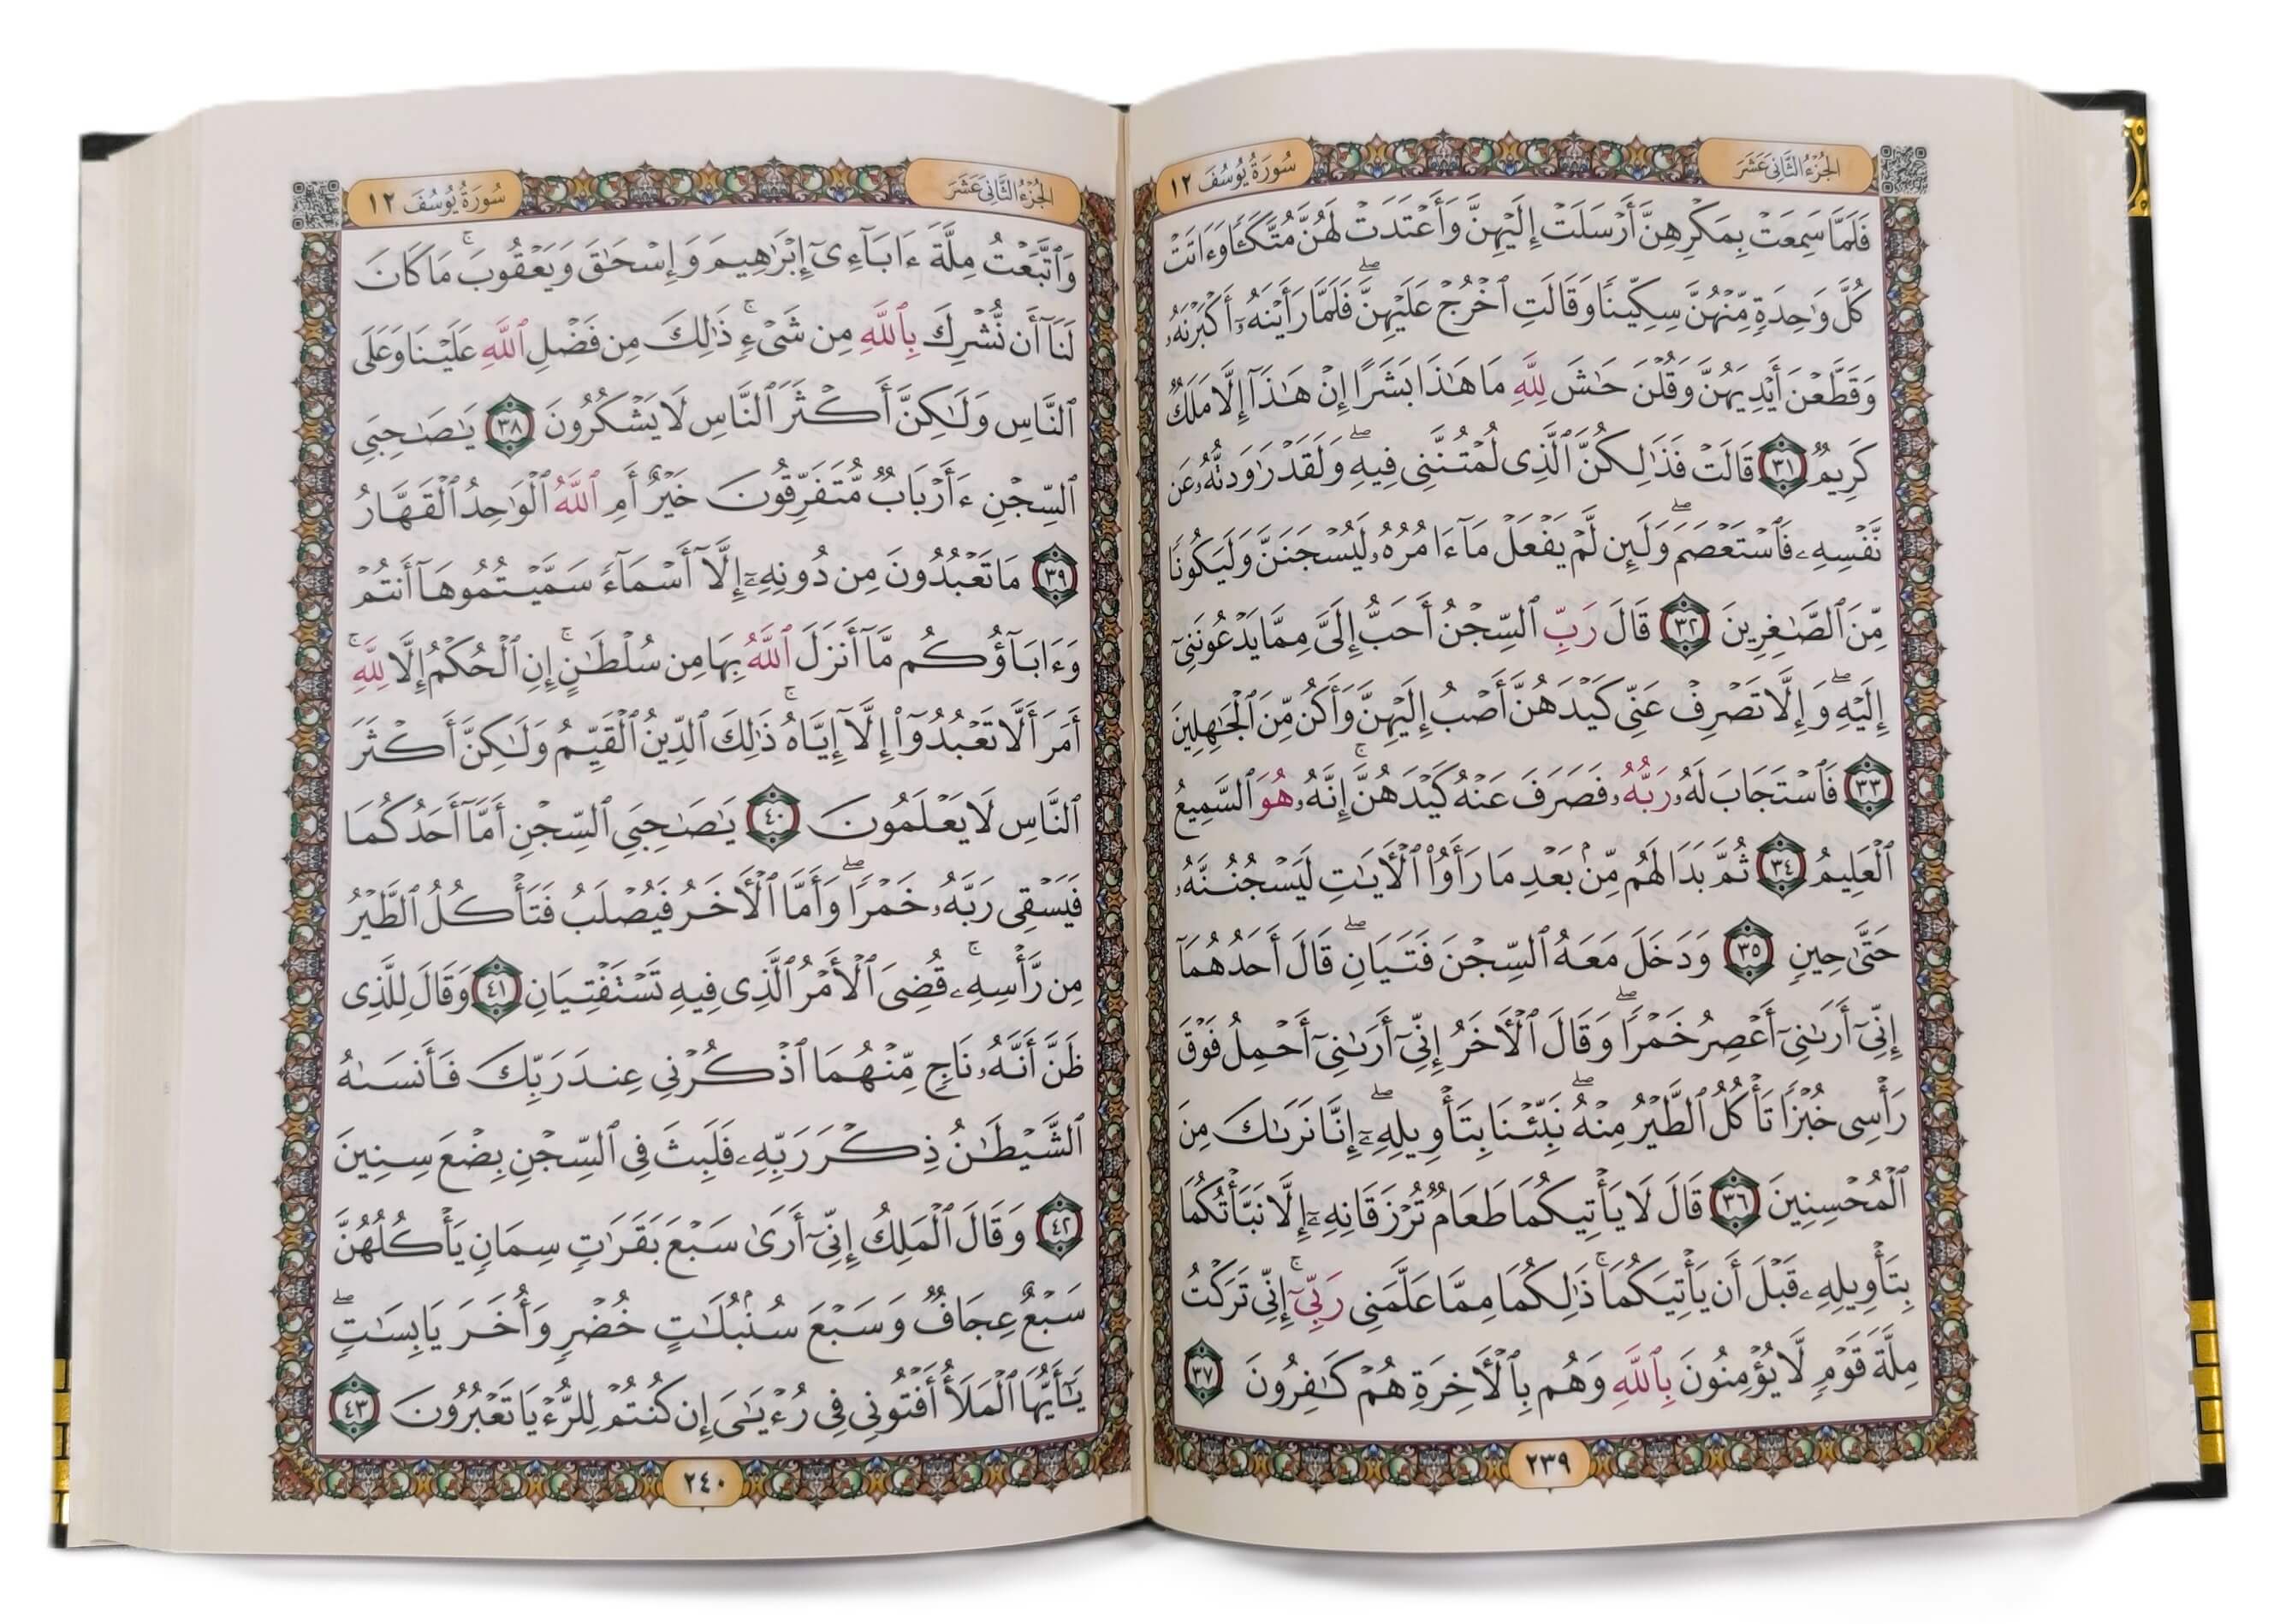 الجُزْءُ الثَّانِي عَشَرَ
سُورَةُ يُوسُفَ ١٢
فَلَمَّا سَمِعَتْ بِمَكْرِهِنَّ أَرْسَلَتْ إِلَيْهِنَّ وَأَعْتَدَتْ لَهُنَّ مُتَّكَـًٔا وَءَاتَتْ
كُلَّ وَٰحِدَةٍ مِّنْهُنَّ سِكِّينًا وَقَالَتِ ٱخْرُجْ عَلَيْهِنَّ ۖ فَلَمَّا رَأَيْنَهُۥٓ أَكْبَرْنَهُۥ
وَقَطَّعْنَ أَيْدِيَهُنَّ وَقُلْنَ حَـٰشَ لِلَّهِ مَا هَـٰذَا بَشَرًا إِنْ هَـٰذَآ إِلَّا مَلَكٌ
كَرِيمٌ ٣١ قَالَتْ فَذَٰلِكُنَّ ٱلَّذِى لُمْتُنَّنِى فِيهِ ۖ وَلَقَدْ رَٰوَدتُّهُۥ عَن
نَّفْسِهِۦ فَٱسْتَعْصَمَ ۖ وَلَئِن لَّمْ يَفْعَلْ مَآ ءَامُرُهُۥ لَيُسْجَنَنَّ وَلَيَكُونًا
مِّنَ ٱلصَّـٰغِرِينَ ٣٢ قَالَ رَبِّ ٱلسِّجْنُ أَحَبُّ إِلَىَّ مِمَّا يَدْعُونَنِىٓ
إِلَيْهِ ۖ وَإِلَّا تَصْرِفْ عَنِّى كَيْدَهُنَّ أَصْبُ إِلَيْهِنَّ وَأَكُن مِّنَ ٱلْجَـٰهِلِينَ
٣٣ فَٱسْتَجَابَ لَهُۥ رَبُّهُۥ فَصَرَفَ عَنْهُ كَيْدَهُنَّ ۚ إِنَّهُۥ هُوَ ٱلسَّمِيعُ
ٱلْعَلِيمُ ٣٤ ثُمَّ بَدَا لَهُم مِّنۢ بَعْدِ مَا رَأَوُا۟ ٱلْـَٔايَـٰتِ لَيَسْجُنُنَّهُۥ
حَتَّىٰ حِينٍ ٣٥ وَدَخَلَ مَعَهُ ٱلسِّجْنَ فَتَيَانِ ۖ قَالَ أَحَدُهُمَآ
إِنِّىٓ أَرَىٰنِىٓ أَعْصِرُ خَمْرًا ۖ وَقَالَ ٱلْـَٔاخَرُ إِنِّىٓ أَرَىٰنِىٓ أَحْمِلُ فَوْقَ
رَأْسِى خُبْزًا تَأْكُلُ ٱلطَّيْرُ مِنْهُ ۖ نَبِّئْنَا بِتَأْوِيلِهِۦٓ ۖ إِنَّا نَرَىٰكَ مِنَ
ٱلْمُحْسِنِينَ ٣٦ قَالَ لَا يَأْتِيكُمَا طَعَامٌ تُرْزَقَانِهِۦٓ إِلَّا نَبَّأْتُكُمَا
بِتَأْوِيلِهِۦ قَبْلَ أَن يَأْتِيَكُمَا ۚ ذَٰلِكُمَا مِمَّا عَلَّمَنِى رَبِّىٓ ۚ إِنِّى تَرَكْتُ
مِلَّةَ قَوْمٍ لَّا يُؤْمِنُونَ بِٱللَّهِ وَهُم بِٱلْـَٔاخِرَةِ هُمْ كَـٰفِرُونَ ٣٧
٢٣٩
الجُزْءُ الثَّانِي عَشَرَ
سُورَةُ يُوسُفَ ١٢
وَٱتَّبَعْتُ مِلَّةَ ءَابَآءِىٓ إِبْرَٰهِيمَ وَإِسْحَـٰقَ وَيَعْقُوبَ ۚ مَا كَانَ
لَنَآ أَن نُّشْرِكَ بِٱللَّهِ مِن شَىْءٍ ۚ ذَٰلِكَ مِن فَضْلِ ٱللَّهِ عَلَيْنَا وَعَلَى
ٱلنَّاسِ وَلَـٰكِنَّ أَكْثَرَ ٱلنَّاسِ لَا يَشْكُرُونَ ٣٨ يَـٰصَـٰحِبَىِ
ٱلسِّجْنِ ءَأَرْبَابٌ مُّتَفَرِّقُونَ خَيْرٌ أَمِ ٱللَّهُ ٱلْوَٰحِدُ ٱلْقَهَّارُ
٣٩ مَا تَعْبُدُونَ مِن دُونِهِۦٓ إِلَّآ أَسْمَآءً سَمَّيْتُمُوهَآ أَنتُمْ
وَءَابَآؤُكُم مَّآ أَنزَلَ ٱللَّهُ بِهَا مِن سُلْطَـٰنٍ ۚ إِنِ ٱلْحُكْمُ إِلَّا لِلَّهِ ۚ
أَمَرَ أَلَّا تَعْبُدُوٓا۟ إِلَّآ إِيَّاهُ ۚ ذَٰلِكَ ٱلدِّينُ ٱلْقَيِّمُ وَلَـٰكِنَّ أَكْثَرَ
ٱلنَّاسِ لَا يَعْلَمُونَ ٤٠ يَـٰصَـٰحِبَىِ ٱلسِّجْنِ أَمَّآ أَحَدُكُمَا
فَيَسْقِى رَبَّهُۥ خَمْرًا ۖ وَأَمَّا ٱلْـَٔاخَرُ فَيُصْلَبُ فَتَأْكُلُ ٱلطَّيْرُ
مِن رَّأْسِهِۦ ۚ قُضِىَ ٱلْأَمْرُ ٱلَّذِى فِيهِ تَسْتَفْتِيَانِ ٤١ وَقَالَ لِلَّذِى
ظَنَّ أَنَّهُۥ نَاجٍ مِّنْهُمَا ٱذْكُرْنِى عِندَ رَبِّكَ فَأَنسَىٰهُ
ٱلشَّيْطَـٰنُ ذِكْرَ رَبِّهِۦ فَلَبِثَ فِى ٱلسِّجْنِ بِضْعَ سِنِينَ
٤٢ وَقَالَ ٱلْمَلِكُ إِنِّىٓ أَرَىٰ سَبْعَ بَقَرَٰتٍ سِمَانٍ يَأْكُلُهُنَّ
سَبْعٌ عِجَافٌ وَسَبْعَ سُنۢبُلَـٰتٍ خُضْرٍ وَأُخَرَ يَابِسَـٰتٍ ۖ
يَـٰٓأَيُّهَا ٱلْمَلَأُ أَفْتُونِى فِى رُءْيَـٰىَ إِن كُنتُمْ لِلرُّءْيَا تَعْبُرُونَ ٤٣
٢٤٠